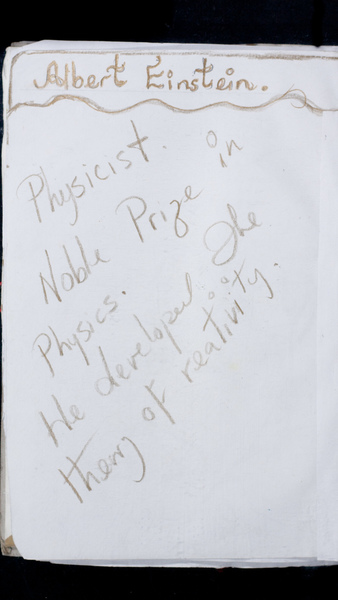 Albert Einstein.
Physicist.
Noble Prize in
Physics.
He developed the
theory of reativity.